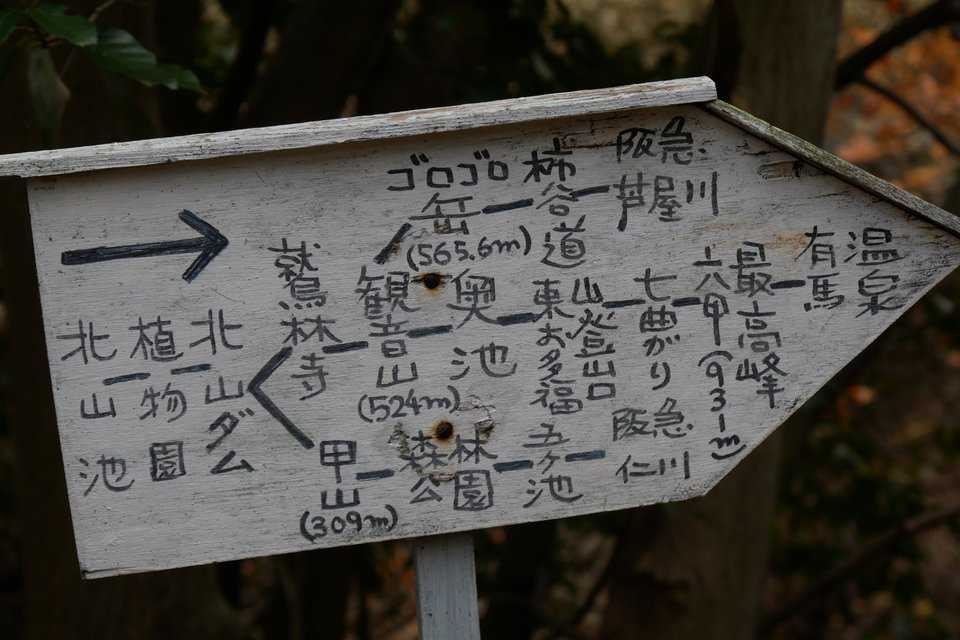 北山池
植物園
北山ダム
鷲林寺
ゴロゴロ岳
(565.6m)
柿谷道
阪急
芦屋川
観音山
(524m)
奥池
東お多福山登山口
七曲がり
六甲最高峰
(931m)
有馬温泉
甲山
(309m)
森林公園
五ヶ池
阪急
仁川